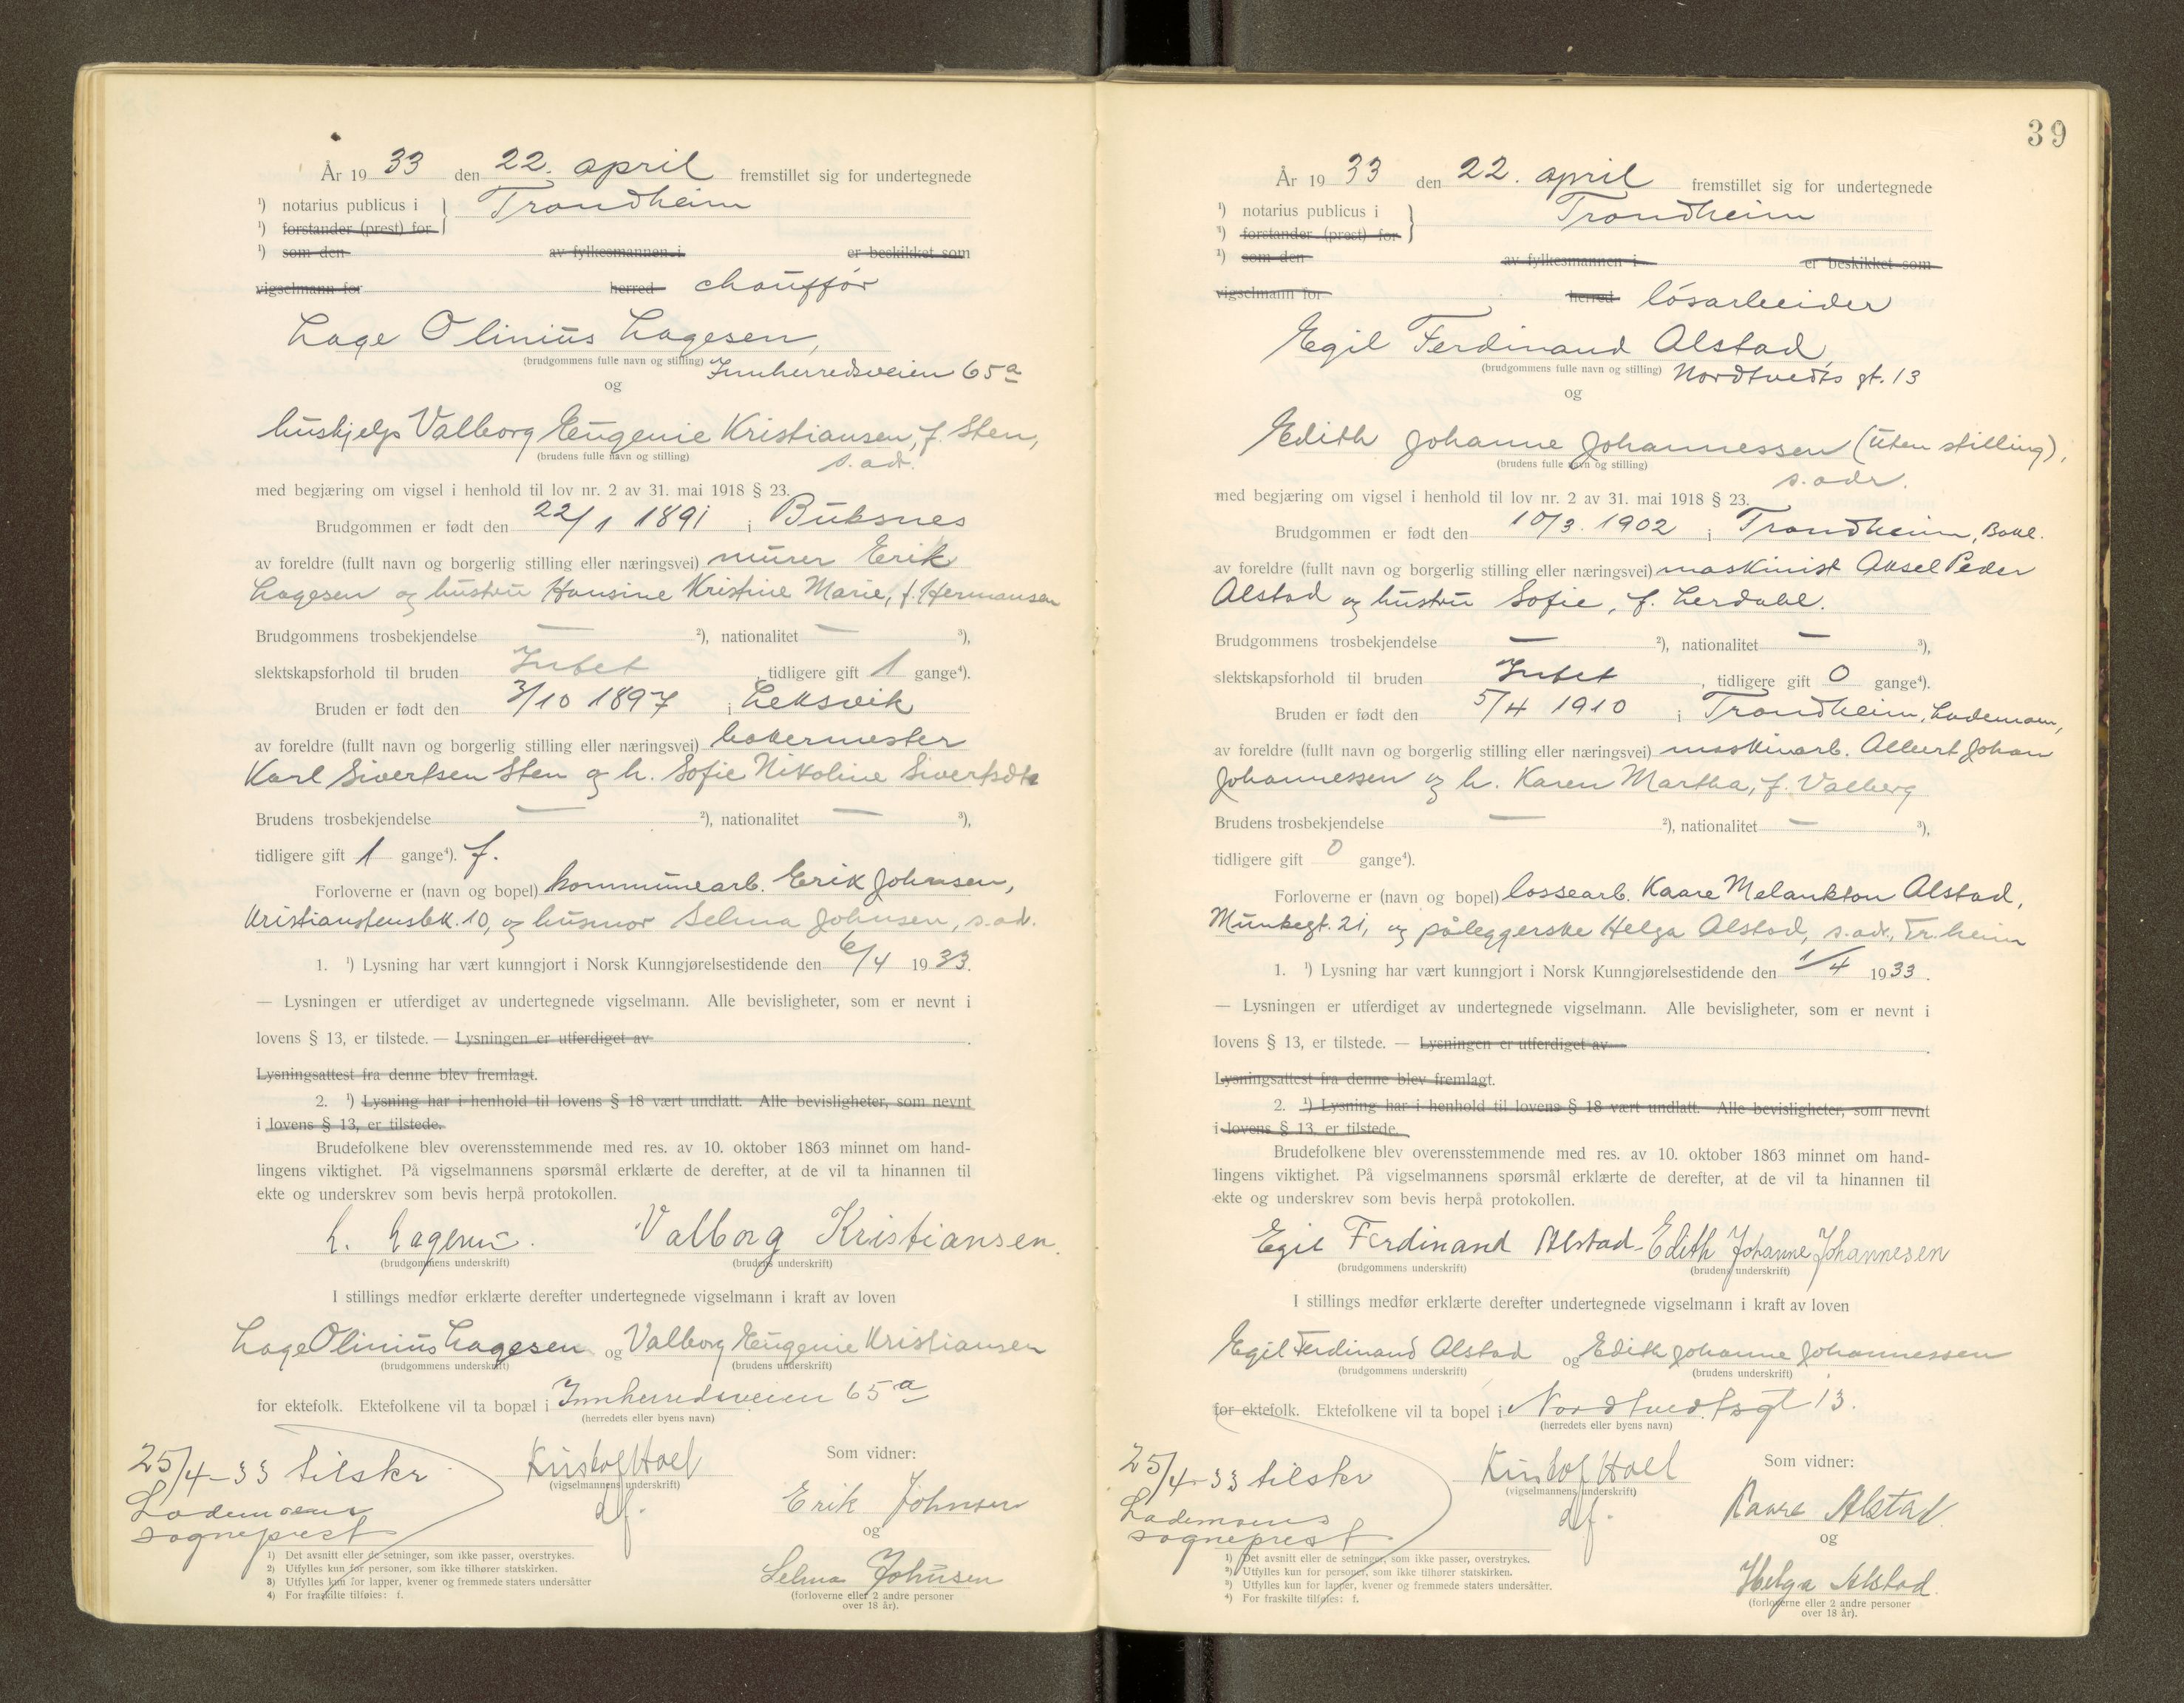 År 19 33 den 22. april fremstillet sig for undertegnede
¹) notarius publicus i } Trondheim
¹) forstander (prest) for
¹) som den av fylkesmannen i er beskikket som
vigselmann for herred chauffør
Lage Olinius Lagesen,
(brudgommens fulle navn og stilling) Innherredsveien 65a
og
huskjelp Valborg Eugenie Kristiansen, f. Sten,
(brudens fulle navn og stilling) s. ad.
med begjæring om vigsel i henhold til lov nr. 2 av 31. mai 1918 § 23.
Brudgommen er født den 22/1 1891 i Buksnes
av foreldre (fullt navn og borgerlig stilling eller næringsvei) murer Erik
Lagesen og hustru Hansine Kristine Marie, f. Hermansen
Brudgommens trosbekjendelse — ²), nationalitet — ³),
slektskapsforhold til bruden Intet, tidligere gift 1 gange⁴).
Bruden er født den 3/10 1897 i Leksvik
av foreldre (fullt navn og borgerlig stilling eller næringsvei) bakermester
Karl Sivertsen Sten og h. Sofie Nikoline Sivertsdtr
Brudens trosbekjendelse — ²), nationalitet — ³),
tidligere gift 1 gange⁴). f.
Forloverne er (navn og bopel) kommunearb. Erik Johnsen,
Kristianstensbk. 10, og husmor Selma Johnsen, s. ad.
1. ¹) Lysning har vært kunngjort i Norsk Kunngjørelsestidende den 6/4 1933.
— Lysningen er utferdiget av undertegnede vigselmann. Alle bevisligheter, som er nevnt i
lovens § 13, er tilstede. — Lysningen er utferdiget av .
Lysningsattest fra denne blev fremlagt.
2. ¹) Lysning har i henhold til lovens § 18 vært undlatt. Alle bevisligheter, som nevnt
i lovens § 13, er tilstede.
Brudefolkene blev overensstemmende med res. av 10. oktober 1863 minnet om hand-
lingens viktighet. På vigselmannens spørsmål erklærte de derefter, at de vil ta hinannen til
ekte og underskrev som bevis herpå protokollen.
L. Lagesen. Valborg Kristiansen.
(brudgommens underskrift) (brudens underskrift)
I stillings medfør erklærte derefter undertegnede vigselmann i kraft av loven
Lage Olinius Lagesen og Valborg Eugenie Kristiansen
(brudgommens underskrift) (brudens underskrift)
for ektefolk. Ektefolkene vil ta bopæl i Innherredsveien 65a
(herredets eller byens navn)
25/4-33 tilskr.
Lademoens
sogneprest
Kristof Hoel
(vigselmannens underskrift)
df.
Som vidner:
Erik Johnsen
og
Selma Johnsen
(forloverne eller 2 andre personer
over 18 år).
1) Det avsnitt eller de setninger, som ikke passer, overstrykes.
2) Utfylles kun for personer, som ikke tilhører statskirken.
3) Utfylles kun for lapper, kvener og fremmede staters undersåtter
4) For fraskilte tilføies: f.
39
År 19 33 den 22. april fremstillet sig for undertegnede
¹) notarius publicus i } Trondheim
¹) forstander (prest) for
¹) som den av fylkesmannen i er beskikket som
vigselmann for herred løsarbeider
Egil Ferdinand Alstad,
(brudgommens fulle navn og stilling) Nordtvedts gt. 13
og
Edith Johanne Johannessen (uten stilling),
(brudens fulle navn og stilling) s. adr.
med begjæring om vigsel i henhold til lov nr. 2 av 31. mai 1918 § 23.
Brudgommen er født den 10/3 1902 i Trondheim, Bakl.
av foreldre (fullt navn og borgerlig stilling eller næringsvei) maskinist Aksel Peder
Alstad og hustru Sofie, f. Lerdahl.
Brudgommens trosbekjendelse — ²), nationalitet — ³),
slektskapsforhold til bruden Intet, tidligere gift 0 gange⁴).
Bruden er født den 5/4 1910 i Trondheim, Lademoen,
av foreldre (fullt navn og borgerlig stilling eller næringsvei) maskinarb. Albert Johan
Johannessen og h. Karen Martha, f. Valberg
Brudens trosbekjendelse — ²), nationalitet — ³),
tidligere gift 0 gange⁴).
Forloverne er (navn og bopel) lossearb. Kaare Melankton Alstad,
Munkegt. 21, og påleggerske Helga Alstad, s. ad., Tr.heim
1. ¹) Lysning har vært kunngjort i Norsk Kunngjørelsestidende den 1/4 1933.
— Lysningen er utferdiget av undertegnede vigselmann. Alle bevisligheter, som er nevnt i
lovens § 13, er tilstede. — Lysningen er utferdiget av .
Lysningsattest fra denne blev fremlagt.
2. ¹) Lysning har i henhold til lovens § 18 vært undlatt. Alle bevisligheter, som nevnt
i lovens § 13, er tilstede.
Brudefolkene blev overensstemmende med res. av 10. oktober 1863 minnet om hand-
lingens viktighet. På vigselmannens spørsmål erklærte de derefter, at de vil ta hinannen til
ekte og underskrev som bevis herpå protokollen.
Egil Ferdinand Alstad - Edith Johanne Johannesen
(brudgommens underskrift) (brudens underskrift)
I stillings medfør erklærte derefter undertegnede vigselmann i kraft av loven
Egil Ferdinand Alstad og Edith Johanne Johannessen
(brudgommens underskrift) (brudens underskrift)
for ektefolk. Ektefolkene vil ta bopel i Nordtvedtsgt 13.
(herredets eller byens navn)
25/4-33 tilskr
Lademoens
sogneprest
Kristof Hoel
(vigselmannens underskrift)
df.
Som vidner:
Kaare Alstad.
og
Helga Alstad.
(forloverne eller 2 andre personer
over 18 år).
1) Det avsnitt eller de setninger, som ikke passer, overstrykes.
2) Utfylles kun for personer, som ikke tilhører statskirken.
3) Utfylles kun for lapper, kvener og fremmede staters undersåtter.
4) For fraskilte tilføies: f.